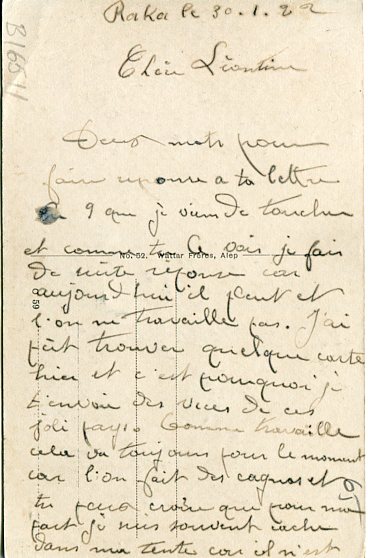 Raka le 30.1.22
Chère Léontine
Deux mots pour
faire reponse a ta lettre
9 que je viens de toucher
et comme tu le vois je fais
No. 52. Wattar Frères, Alep
de suite réponse car
aujourd'hui il pleut et
l'on ne travaille pas. J'ai
59
peut trouver quelque carte
hier et c'est pourquoi je
t'envoie des vues de ces
joli pays. Comme travaille
cela va toujours pour le moment
car l'on fait des cagnas et
tu peux croire que pour ma
part je suis souvent cacher
dans ma tente car il n'est
B165 11